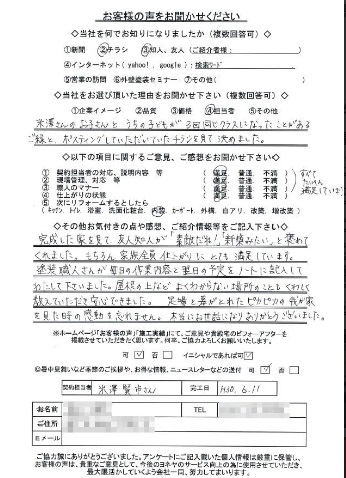 お客様の声をお聞かせください
◇当社を何でお知りになりましたか（複数回答可）◇
①新聞 ②チラシ ③知人、友人（ご紹介者様： ）
④インターネット（yahoo!、google）：検索ワード
⑤営業の訪問 ⑥外壁塗装セミナー ⑦その他（ ）
◇当社をお選び頂いた理由をお聞かせ下さい（複数回答可）◇
①企業イメージ ②品質 ③価格 ④担当者 ⑤その他
米澤さんのお子さんと うちの子どもが 3回同じクラスになったことがある
ご縁と、ポスティングしていただいていたチラシを見て 決めました。
◇以下の項目に関するご意見、ご感想をお聞かせ下さい◇
① 契約担当者の対応、説明内容 等 （満足 普通 不満 ）
② 現場管理、対応 等 （満足 普通 不満 ）
③ 職人のマナー （満足 普通 不満 ）
④ 仕上がりの状態 （満足 普通 不満 ）
すべて
満足しています!
⑤ 次にリフォームするとしたら
（キッチン、トイレ、浴室、洗面化粧台、内装、カーポート、外構、白アリ、改築、増改築）
◇その他お気付きの点や感想、ご紹介情報等をご記入下さい◇
完成した家を見て 友人知人が「素敵だね!」「新築みたい」と 褒めて
くれました。もちろん 家族全員 仕上がりに とても 満足しています。
塗装職人さんが毎日の作業内容と 翌日の予定を ノートに記入して
わたして下さいました。屋根の上など よくわからない場所のことも くわしく
教えていただき安心できました。 足場と幕がとれた ピカピカの我が家
を見た時の感動を忘れません。本当にお世話になりありがとうございました。
※ホームページ「お客様の声」「施工実績」にて、ご意見や貴殿宅のビフォーアフターを
掲載させていただきたく思います。何卒、ご協力よろしくお願いいたします。
可 否 イニシャルであれば可
◎暑中見舞いなど季節のご挨拶や、お得な情報、ニュースレターなどの送付 可 否
契約担当者 米澤 賢市さん 完工日 H30. 6. 11
お名前 TEL
ご住所
Eメール
ご協力誠にありがとうございました。アンケートにご記入戴いた個人情報は厳重に保管し、
お客様の声は、貴重なご意見として、今後のヨネヤのサービス向上の為に使用させていただき、
最大議活かしていくよう会社一同、努力してまいります。